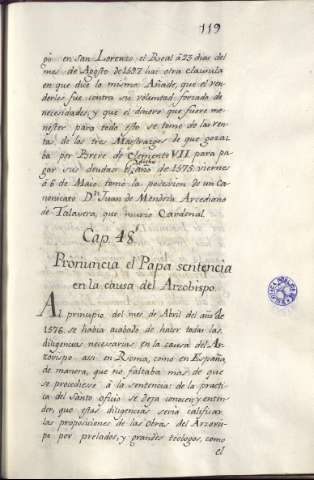 119
gio en san Lorenzo el Real á 23 dias del
mes de Agosto de 1597 hai otra clausula
en que dice lo mismo. Añade, que el ven-
derlos fue contra su voluntad forzada de
necesidades, y que el dinero que fuere me-
nester para todo esto se tome de las ren-
tas de los tres Maestrazgos de que goza-
ba por Breve de Clemente VII para pa-
gar sus deudas. El año de 1575 viernes
á 6 de Maio tomó la posesion de un Ca-
nonicato Dn Juan de Mendoza Arcediano
de Talavera, que murio Cardenal.
Cap. 48
Pronuncia el Papa sentencia
en la causa del Arzobispo.
Al principio del mes de Abril del año de
1576 se habia acabado de hacer todas las
diligencias necesarias en la causa del Ar-
zobispo asi en Roma, como en España,
de manera, que no faltaba mas de que
se procediese á la sentencia: de la practi-
ca del Santo oficio se deja conocer y enten-
der, que estas diligencias seria calificar
las proposiciones de las obras del Arzobis-
po por prelados, y grandes teologos, como
el